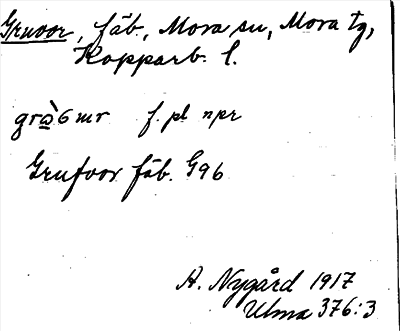 Gruvor, fäb, Mora sn, Mora tg,
Kopparb. l.
f. pl npr
Grufvor fäb. G96
A. Nygård 1917
Ulma 376:3